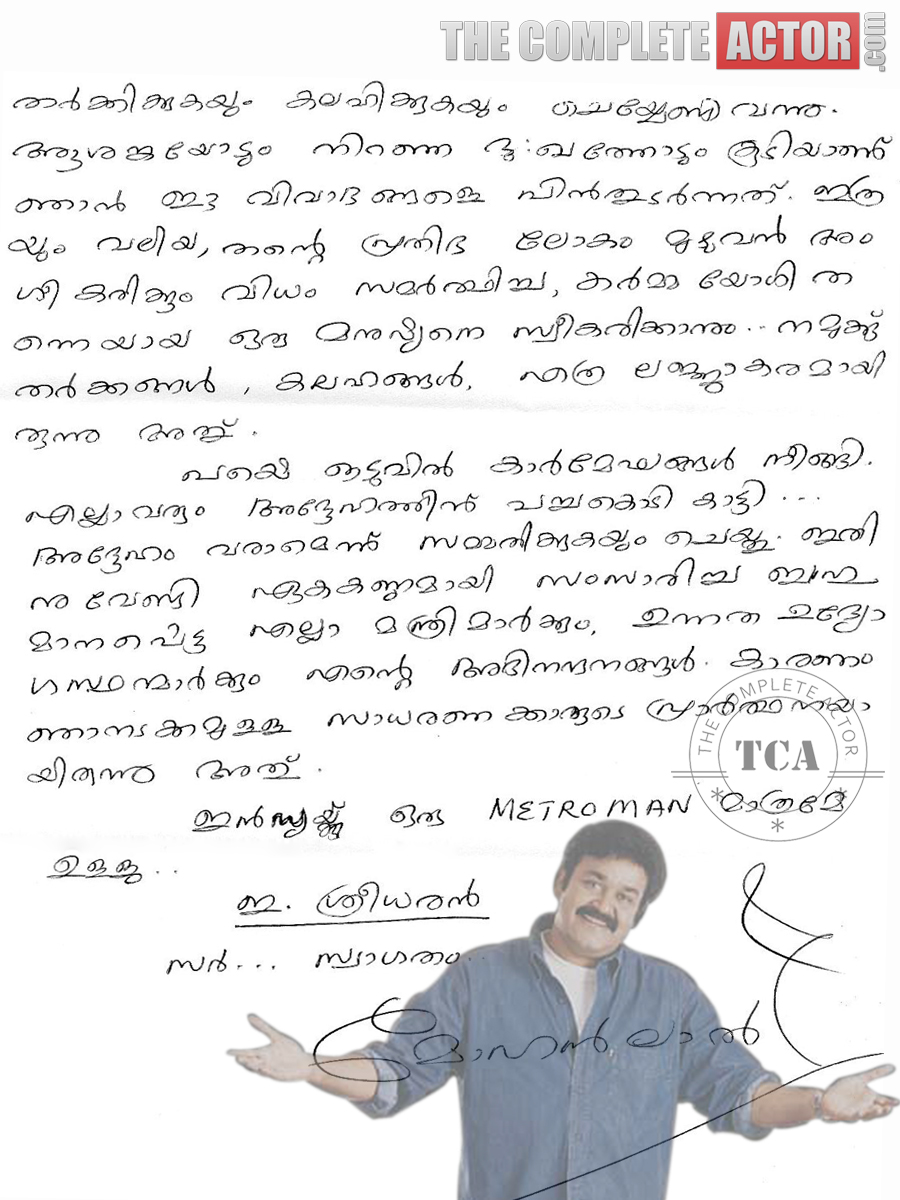 THE COMPLETE ACTOR .com
തർക്കിക്കുകയും കലഹിക്കുകയും ചെയ്യേണ്ടി വന്നു.
ആശങ്കയോടും നിറഞ്ഞ ദു:ഖത്തോടും കൂടിയാണ്
ഞാൻ ഈ വിവാദങ്ങളെ പിൻതുടർന്നത്. ഇത്ര
യും വലിയ, തന്റെ പ്രതിഭ ലോകം മുഴുവൻ അം
ഗീകരിക്കും വിധം സമർത്ഥിച്ച, കർമ്മയോഗി ത
ന്നെയായ ഒരു മനുഷ്യനെ സ്വീകരിക്കാനും.. നമുക്ക്
തർക്കങ്ങൾ, കലഹങ്ങൾ, എത്ര ലജ്ജാകരമായി
രുന്നു അത്.
പക്ഷെ ഒടുവിൽ കാർമേഘങ്ങൾ നീങ്ങി.
എല്ലാവരും അദ്ദേഹത്തിന് പച്ചകൊടി കാട്ടി...
അദ്ദേഹം വരാമെന്ന് സമ്മതിക്കുകയും ചെയ്തു. ഇതി
നു വേണ്ടി ഏകകണ്ഠമായി സംസാരിച്ച ബഹു
മാനപ്പെട്ട എല്ലാ മന്ത്രിമാർക്കും, ഉന്നത ഉദ്യോ
ഗസ്ഥന്മാർക്കും എന്റെ അഭിനന്ദനങ്ങൾ. കാരണം
ഞാനടക്കമുള്ള സാധരണക്കാരുടെ പ്രാർത്ഥനയാ
യിരുന്നു അത്.
THE COMPLETE ACTOR
TCA
ഇൻഡ്യയ്ക്ക് ഒരു METROMAN മാത്രമേ
ഉള്ളു..
ഇ. ശ്രീധരൻ
സർ... സ്വാഗതം..
മോഹൻലാൽ